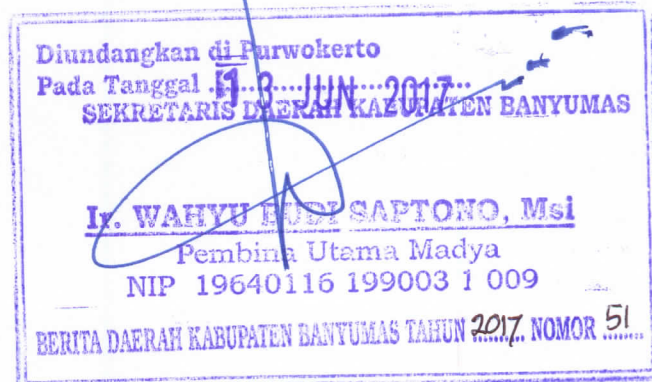 Diundangkan di Purwokerto
Pada Tanggal 13 JUN 2017
SEKRETARIS DAERAH KABUPATEN BANYUMAS
Ir. WAHYU BUDI SAPTONO, Msi
Pembina Utama Madya
NIP 19640116 199003 1 009
BERITA DAERAH KABUPATEN BANYUMAS TAHUN 2017 NOMOR 51